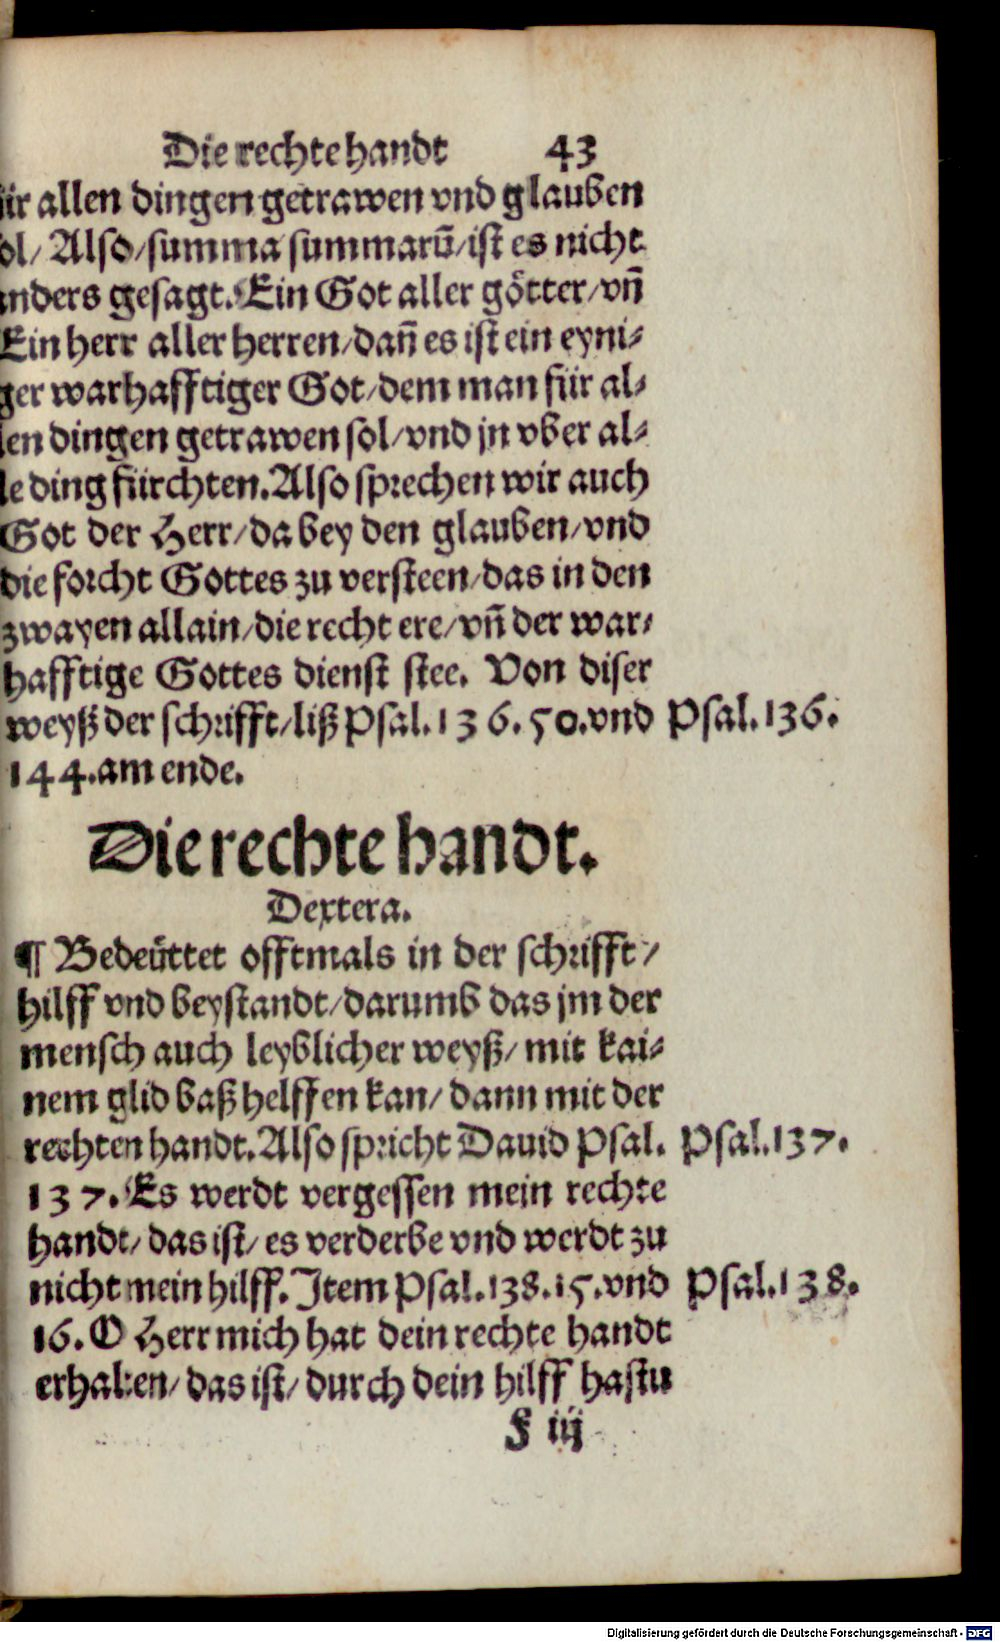 Die rechte handt 43
für allen dingen getrawen vnd glauben
sol/ Also/summa summarū/ist es nicht
anders gesagt. Ein Got aller götter/vñ
Ein herr aller herren/dañ es ist ein eyni-
ger warhafftiger Got/dem man für al-
len dingen getrawen sol/vnd jn vber al-
le ding fürchten. Also sprechen wir auch
Got der Herr/da bey den glauben/vnd
die forcht Gottes zu versteen/das in den
zwayen allain/die recht ere/vñ der war-
hafftige Gottes dienst stee. Von diser
weyß der schrifft/liß Psal. 136. 50. vnd Psal. 136.
144. am ende.
Die rechte handt.
Dextera.
¶ Bedeüttet offtmals in der schrifft/
hilff vnd beystandt/darumb das jm der
mensch auch leyblicher weyß/ mit kai-
nem glid baß helffen kan/ dann mit der
rechten handt. Also spricht Dauid Psal. Psal. 137.
137. Es werdt vergessen mein rechte
handt/ das ist/ es verderbe vnd werdt zu
nicht mein hilff. Item Psal. 138. 15. vnd Psal. 138.
16. O Herr mich hat dein rechte handt
erhaben/ das ist/ durch dein hilff hastu
F iij
Digitalisierung gefördert durch die Deutsche Forschungsgemeinschaft - DFG